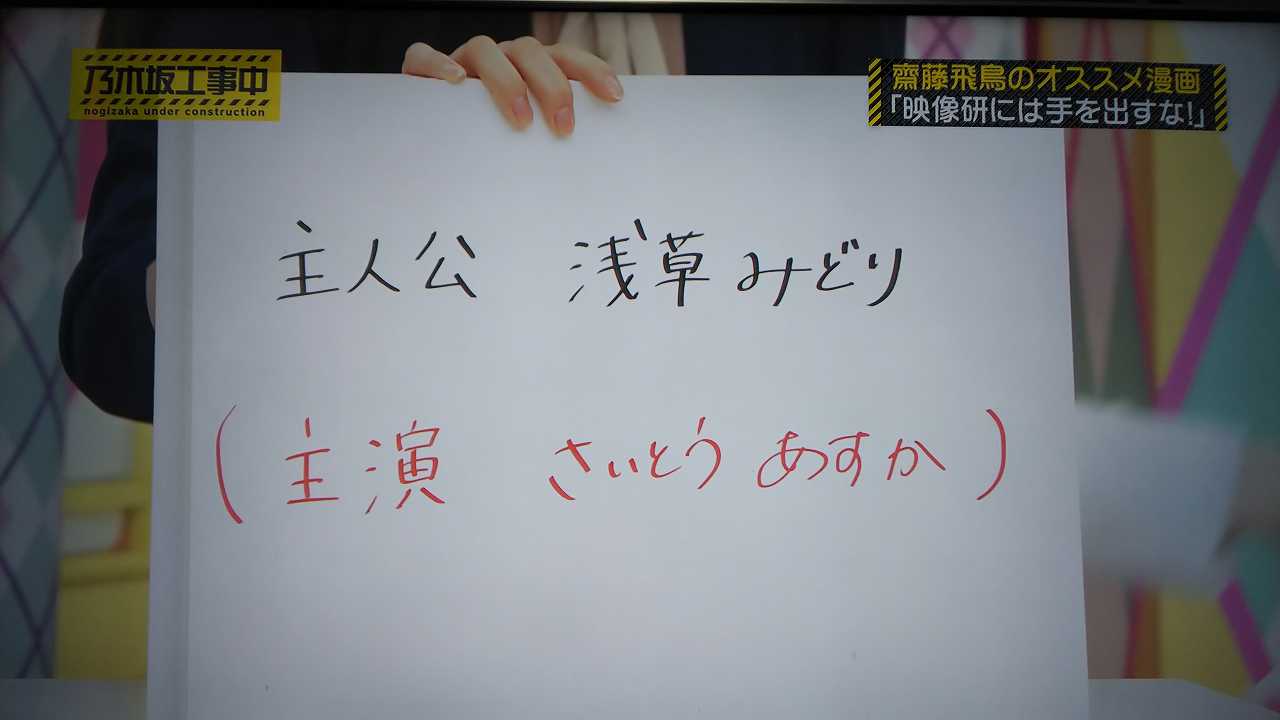 乃木坂工事中
nogizaka under construction
齋藤飛鳥のオススメ漫画
「映像研には手を出すな!」
主人公 浅草みどり
(主演 さいとう あすか)